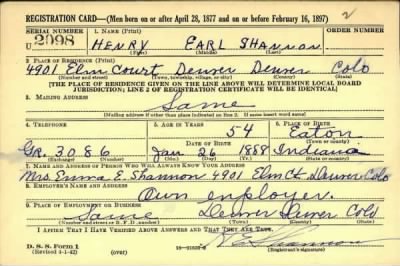 REGISTRATION CARD—(Men born on or after April 28, 1877 and on or before February 16, 1897)
SERIAL NUMBER 1. NAME (Print) ORDER NUMBER
U 2098 HENRY EARL SHANNON
(First) (Middle) (Last)
2. PLACE OF RESIDENCE (Print)
4901 Elm Court Denver Denver Colo
(Number and street) (Town, township, village, or city) (County) (State)
[THE PLACE OF RESIDENCE GIVEN ON THE LINE ABOVE WILL DETERMINE LOCAL BOARD
JURISDICTION; LINE 2 OF REGISTRATION CERTIFICATE WILL BE IDENTICAL]
3. MAILING ADDRESS
Same
(Mailing address if other than place indicated on line 2. If same insert word same)
4. TELEPHONE 5. AGE IN YEARS 6. PLACE OF BIRTH
54 Eaton
DATE OF BIRTH (Town or county)
GR. 3086 Jan 26 1888 Indiana
(Exchange) (Number) (Mo.) (Day) (Yr.) (State or country)
7. NAME AND ADDRESS OF PERSON WHO WILL ALWAYS KNOW YOUR ADDRESS
Mrs. Emma E. Shannon 4901 Elm Ct. Denver Colo
8. EMPLOYER'S NAME AND ADDRESS
Own employer.
9. PLACE OF EMPLOYMENT OR BUSINESS
Same Denver Denver Colo
(Number and street or R. F. D. number) (Town) (County) (State)
I AFFIRM THAT I HAVE VERIFIED ABOVE ANSWERS AND THAT THEY ARE TRUE.
D. S. S. Form 1
(Revised 4-1-42) (over)
H E Shannon
(Registrant's signature)